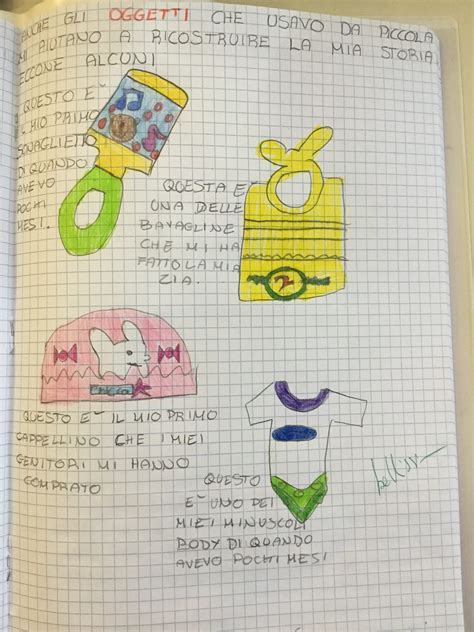 ANCHE GLI OGGETTI CHE USAVO DA PICCOLA
MI AIUTANO A RICOSTRUIRE LA MIA STORIA
ECCONE ALCUNI
QUESTO È
IL MIO PRIMO
SONAGLIETTO
DI QUANDO
AVEVO
POCHI
MESI.
QUESTA È
UNA DELLE
BAVAGLINE
CHE MI HA
FATTO LA MIA
ZIA
QUESTO È IL MIO PRIMO
CAPPELLINO CHE I MIEI
GENITORI MI HANNO
COMPRATO
QUESTO
È UNO DEI
MIEI MINUSCOLI
BODY DI QUANDO
AVEVO POCHI MESI